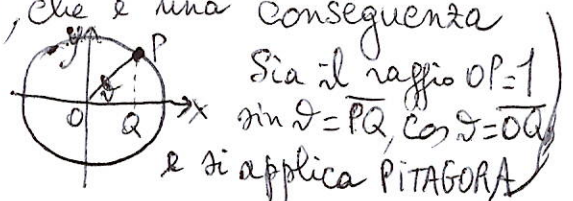 , che è una conseguenza
y P Sia il raggio OP=1
ϑ
O Q x sin ϑ = PQ, cos ϑ = OQ
e si applica PITAGORA)